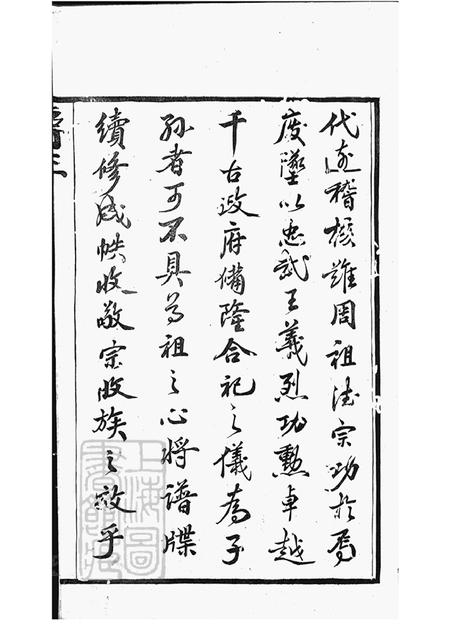 代遠稽核難周祖德宗功於焉
廢墜以忠武王義烈功勳卓越
千古政府備隆合祀之儀為子
孫者可不具尊祖之心將譜牒
續修成帙收敬宗收族之效乎
上海圖書館藏